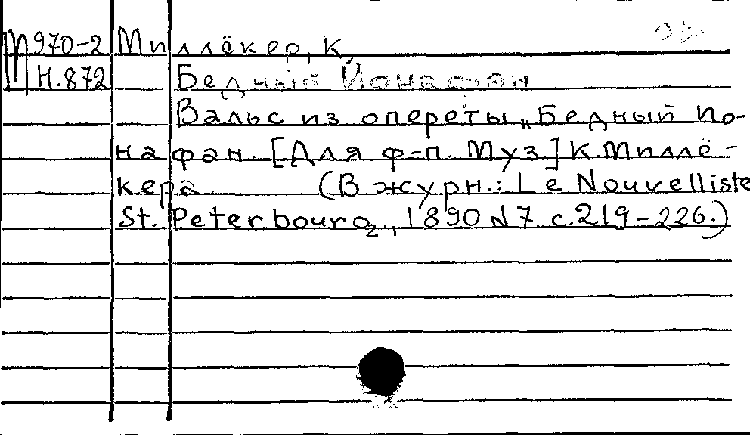 М970-2 Миллёкер, К.
Н.872 Бедный Йонафан
Вальс из оперетты „Бедный Ио-
нафан [Для ф-п. Муз] К. Миллё-
кера (В журн.: Le Nouvelliste
St. Peterbourg, 1890 №7 с. 219-226.)